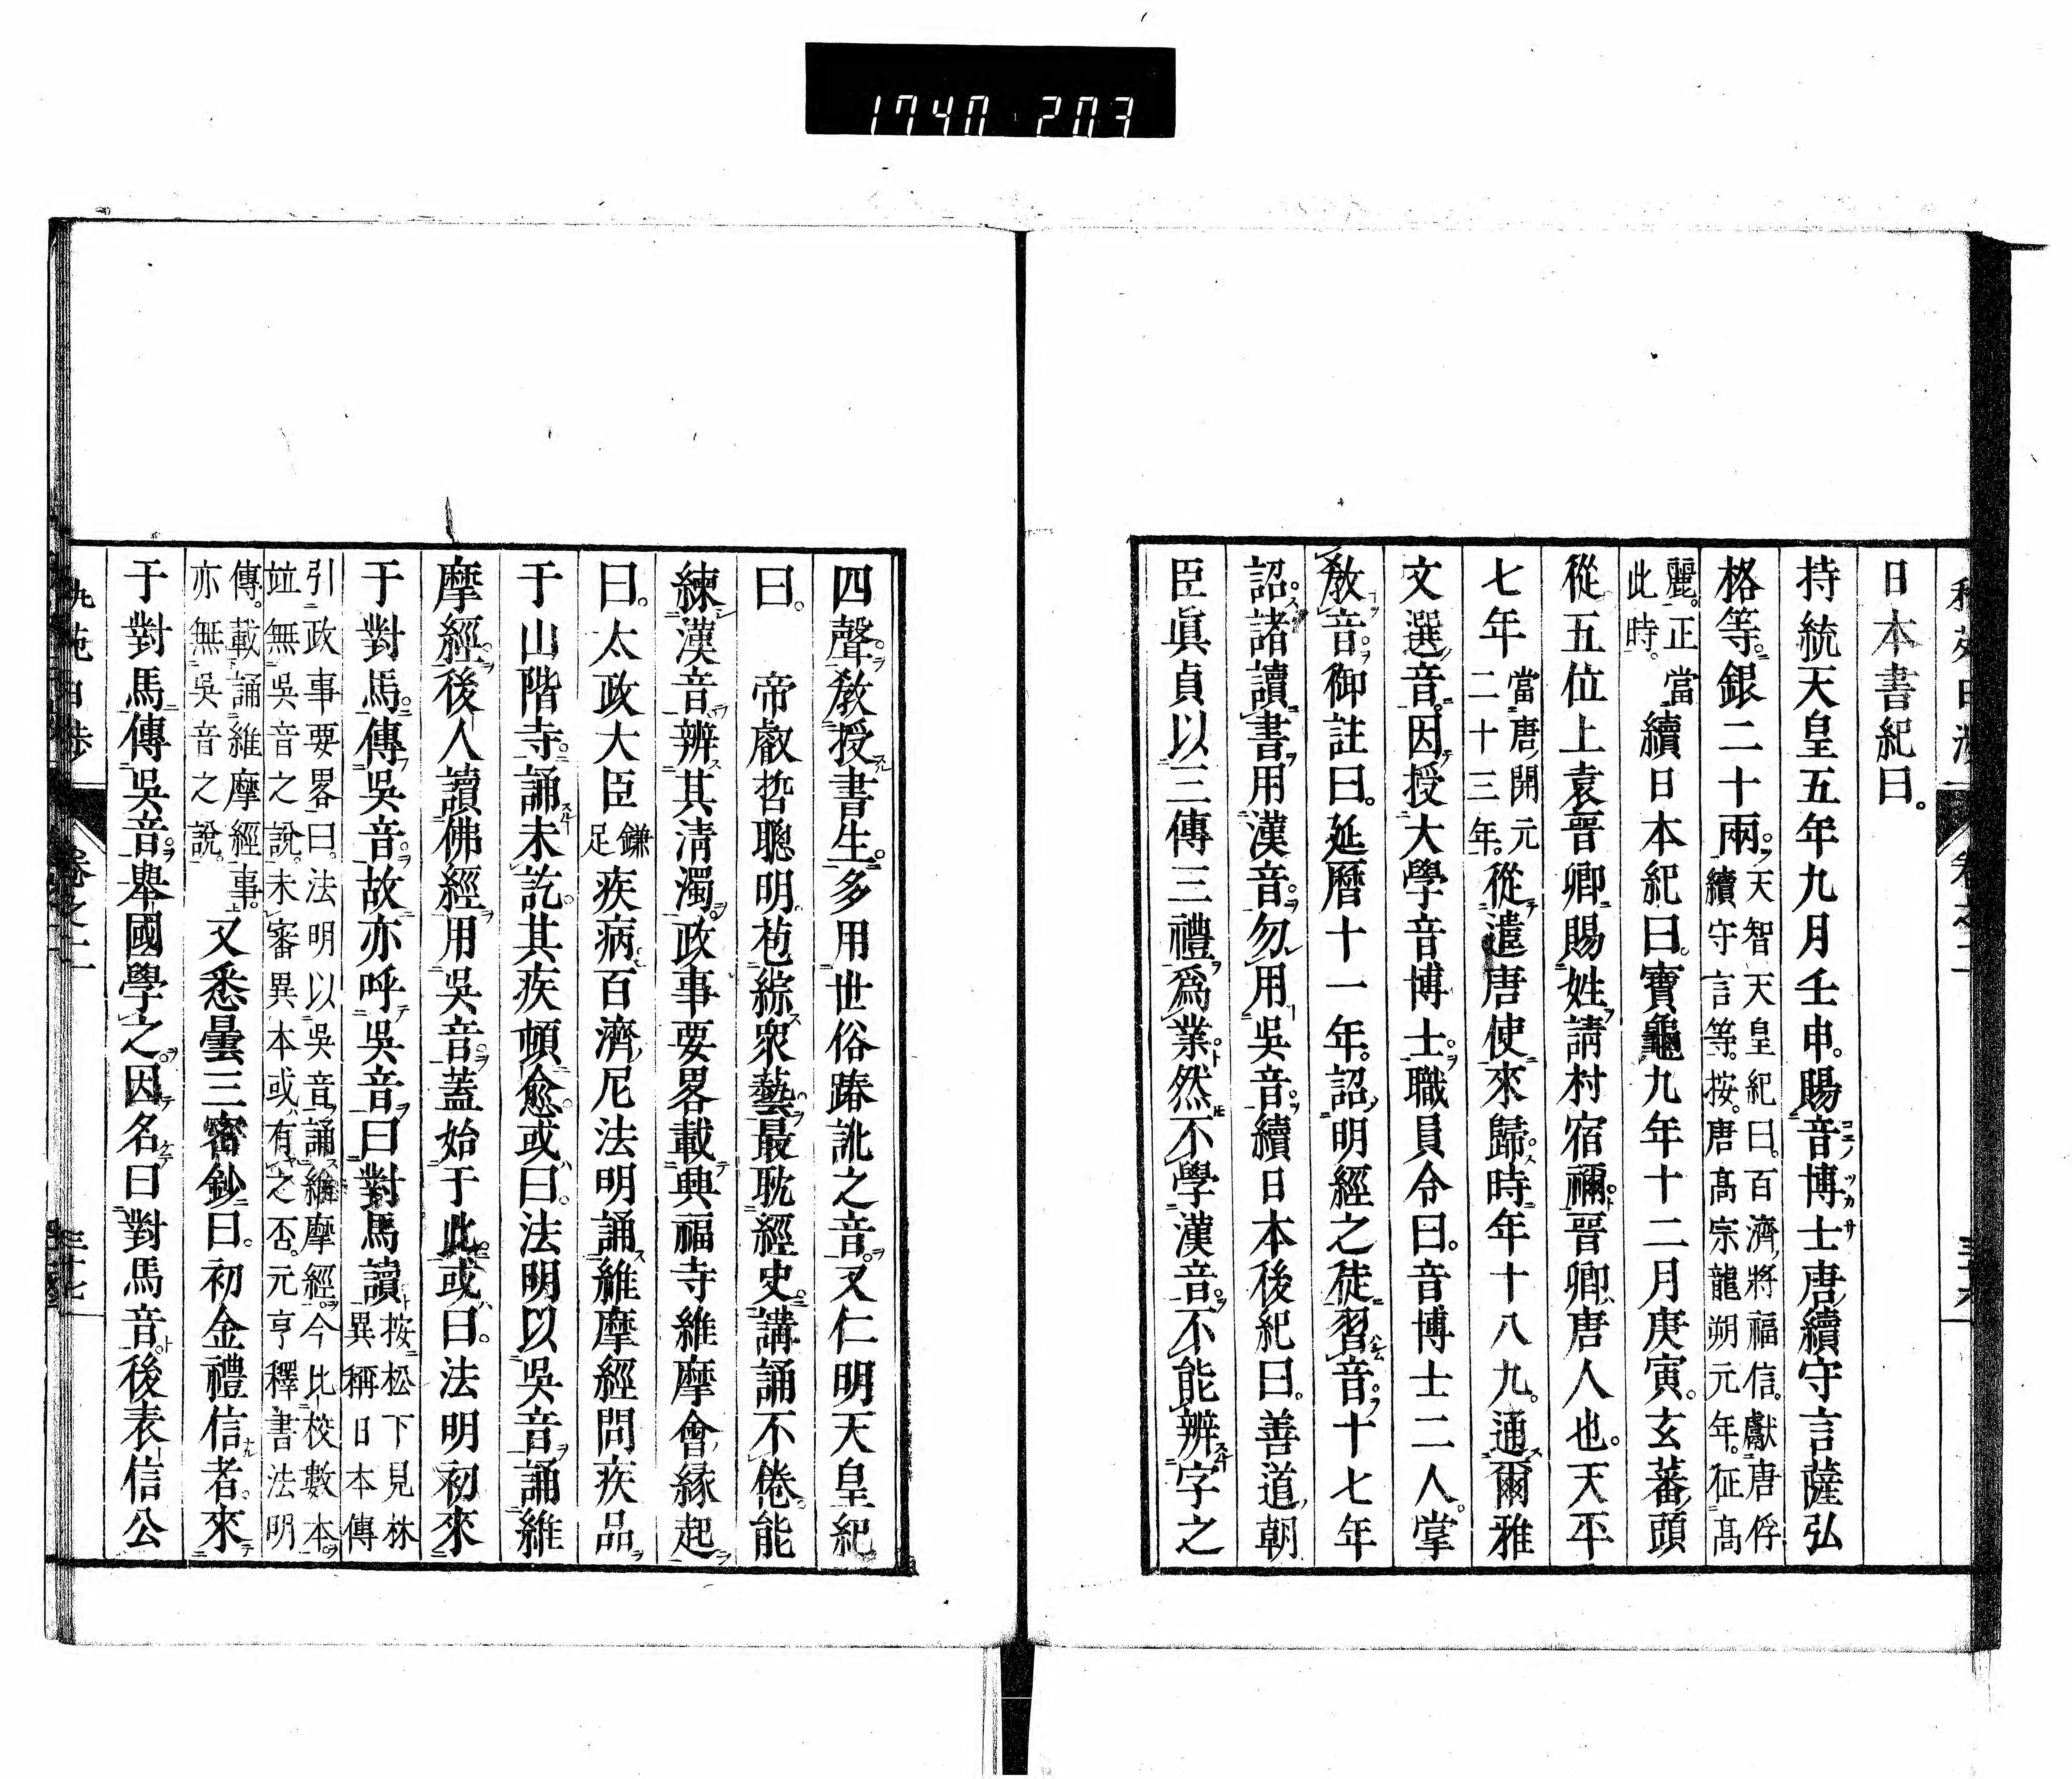 1740 203
日本書紀曰。
持統天皇五年九月壬申。賜音博士唐續守言薩弘
格等。銀二十兩。天智天皇紀曰。百濟將福信。獻唐俘
續守言等。按。唐髙宗龍朔元年。征髙
麗。正當
此時。續日本紀曰。寶龜九年十二月庚寅。玄蕃頭
從五位上袁晉卿賜姓淸村宿禰。晉卿唐人也。天平
七年當唐開元
二十三年。從遣唐使來歸。時年十八九。通爾雅
文選音。因授大學音博士。職員令曰。音博士二人。掌
敎音。御註曰。延曆十一年。詔明經之徒習音。十七年
詔。諸讀書用漢音。勿用吳音。續日本後紀曰。善道朝
臣眞貞以三傳三禮爲業。然不學漢音。不能辨字之
四聲。敎授書生。多用世俗踳訛之音。又仁明天皇紀
曰。 帝叡哲聰明。苞綜衆藝。最耽經史。講誦不倦。能
練漢音。辨其淸濁。政事要畧載興福寺維摩會縁起
曰。太政大臣鎌
足疾病。百濟尼法明誦維摩經問疾品
于山階寺。誦未訖。其疾頓愈。或曰。法明以吳音誦維
摩經。後人讀佛經用吳音。蓋始于此。或曰。法明初來
于對馬。傳吳音。故亦呼吳音曰對馬讀按松下見林
異稱日本傳
引政事要畧曰。法明以吳音誦維摩經。今比校數本。
竝無吳音之說。未審異本或有之否。元亨釋書法明
傳。載誦維摩經事。
亦無吳音之說。又悉曇三密鈔曰。初金禮信者。來
于對馬傳吳音。擧國學之。因名曰對馬音。後表信公
卷之二
三十七